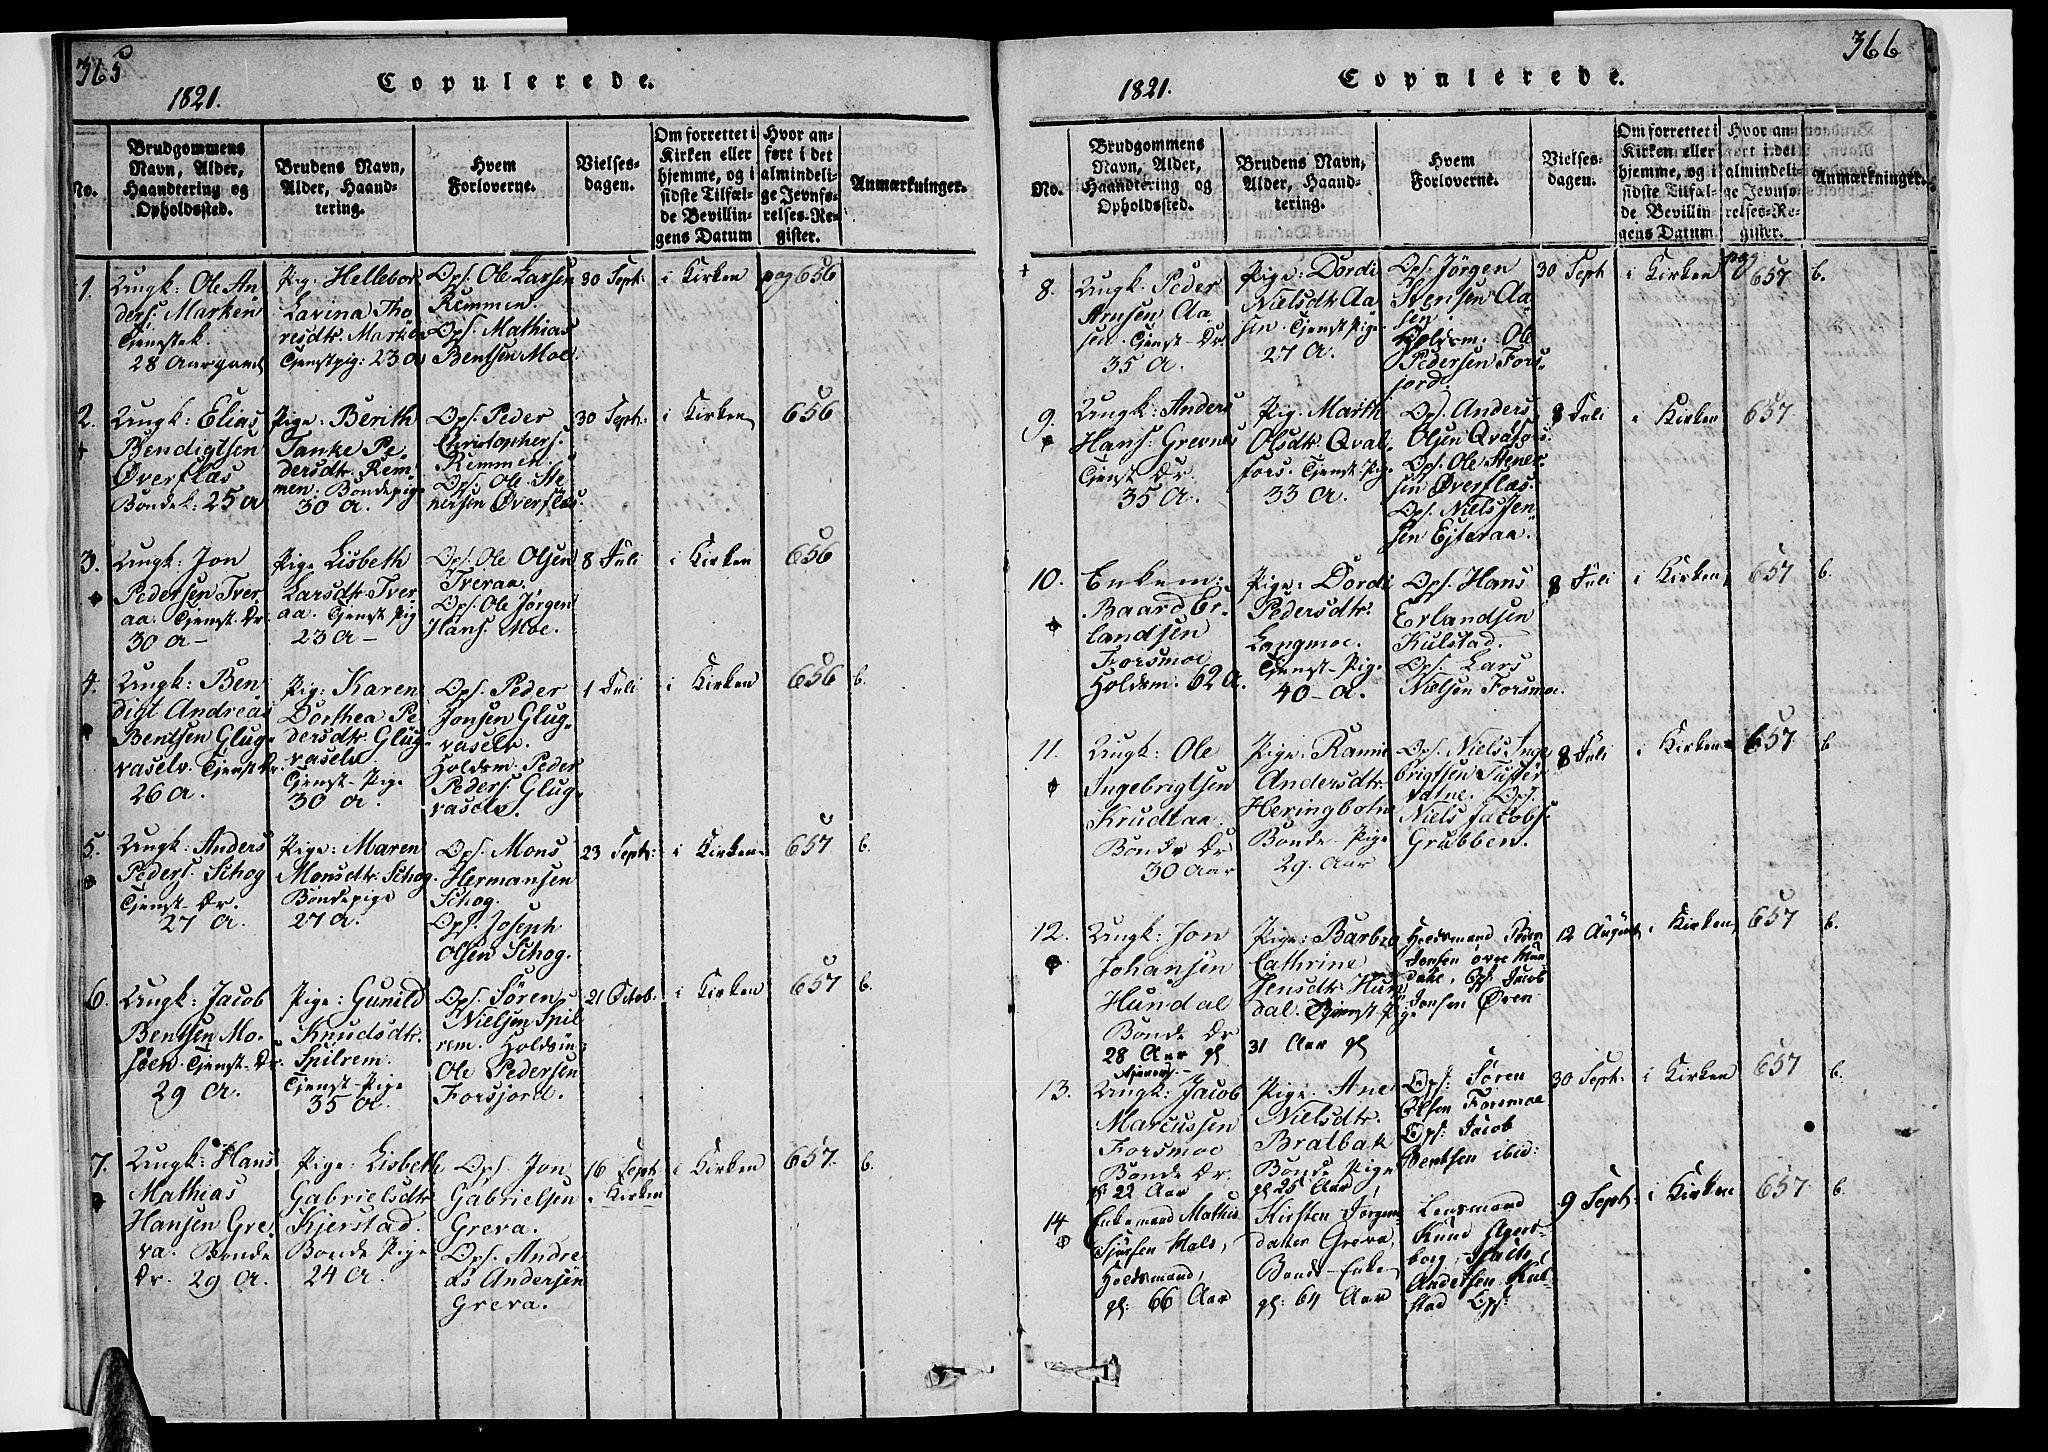 365
Copulerede.
1821.
No.
Brudgommens
Navn, Alder,
Haandtering og
Opholdssted.
Brudens Navn,
Alder, Haand-
tering.
Hvem
Forloverne.
Vielses-
dagen.
Om forrettet i
Kirken eller
hjemme, og i
sidste Tilfæl-
de Bevillin-
gens Datum
Hvor an-
ført i det
almindeli-
ge Jevnfø-
relses-Re-
gister.
Anmærkninger.
1.
Ungk: Ole An
ders: Marken
Tjenstek.
28 Aar gaml
Pig: Hellebor
Lavina Tho
resdtr. Marken
Tjenstpig: 23 A
Ops. Ole Larsen
Remmen.
Ops. Mathias
Bentsen Moe.
30 Sept:
i Kirken
pag 656
2.
Ungk: Elias
Bendigtsen
Øverflas
Bondek: 25 A
Pige: Berith
Tanke Pe-
dersdtr. Rem-
men: Bondepige
30 A.
Ops. Peder
Christophers:
Remmen.
Ops. Ole Ste-
nersen Øverflas.
30 Sept:
i Kirken
656
3.
Ungk: Jon
Pedersen Tver
aa. Tjenst. Dr.
30 A -
Pige Lisbeth
Larsdtr. Tver
aa. Tjenst. Pig
23 A -
Ops. Ole Olsen
Tveraa.
Ops. Ole Jørgen
Hans: Moe.
8 Juli
i Kirken
656
4.
Ungk: Ben
digt Andreas
Bentsen Glug-
vaselv. Tjenst Dr.
26 A.
Pig: Karen
Dorthea Pe
dersdtr. Glug-
vaselv.
Tjenst-Pige
30 A.
Ops. Peder
Jonsen Glug-
vaselv.
Holdsm. Peder
Peders: Glug-
vaselv.
1 Juli
i Kirken
656
b.
5.
Ungk: Anders
Peders: Schog
Tjenst-Dr.
27 A.
Pige: Maren
Monsdtr. Schog.
Bondepige
27 A.
Ops. Mons
Hermansen
Schog.
Ops. Joseph
Olsen Schog.
23 Sept:
i Kirken
657
b.
6.
Ungk: Jacob
Bentsen Mo-
søen Tjenst-Dr.
29 A.
Pige: Gunild
Knudsdtr.
Spilrem.
Tjenst-Pige
35 A.
Ops. Søren
Nielsen Spil
rem. Holdsm:
Ole Pedersen
Forsjord.
21 Octob:
i Kirken
657
b.
7.
Ungk: Hans
Mathias
Hansen Gre
va. Bonde
Dr. 29 A.
Pige: Lisbeth
Gabrielsdtr.
Kjerstad.
Bonde Pige
24 A.
Ops. Jon
Gabrielsen
Greva.
Ops. Andre-
as Andersen
Greva.
16 Sept
i Kirken
i Kirken
657.
b.
366
Copulerede.
1821.
No.
Brudgommens
Navn, Alder,
Haandtering og
Opholdssted.
Brudens Navn,
Alder, Haand-
tering.
Hvem
Forloverne.
Vielses-
dagen.
Om forrettet i
Kirken eller
hjemme, og i
sidste Tilfæl-
de Bevillin-
gens Datum
Hvor an-
ført i det
almindeli-
ge Jevnfø-
relses-Re-
gister.
Anmærkninger.
8.
Ungk. Peder
Arnsen Aa-
sen. Tjenst-Dr.
35 A.
Pige: Dordi
Nielsdtr. Aa
sen. Tjenst Pige
27 A.
Ops. Jørgen
Stensen Aa-
sen.
Holdsm. Ole
Pedersen Fors-
jord.
30 Sept
i Kirken
pag
657
b.
9.
Ungk: Anders
Hans: Grevnes
Tjenst Dr.
35 A.
Pig. Marth
Olsdtr. Qval-
fors. Tjenst. Pig
33 A.
Ops. Anders
Olsen Qvalfors.
Ops. Ole Stener-
sen Øverflas.
Ops. Niels Jen-
sen Ejteraa.
8 Juli
i Kirken
657
10.
Enkem:
Baard Er-
landsen
Forsmoe
Holdsm. 62 A.
Pige: Dordi
Pedersdtr.
Langmoe.
Tjenst-Pige
40 - A.
Ops. Hans
Erlandsen
Kulstad.
Ops. Lars
Nielsen Forsmoe.
8 Juli
i Kirken
657
b.
11.
Ungk: Ole
Ingebrigtsen
Krudtaa
Bonde Dr
30 Aar
Pige: Rannie
Andersdtr.
Heringbotn
Bonde-Pige
29. Aar
Ops. Niels Inge
brigtsen Tuster
vatne. Ops.
Niels Jacobs:
Grubben.
8 Juli
i Kirken
657.
b
12.
Ungk: Jon
Johansen
Hundal
Bonde Dr
28 Aar gl
Pige: Barbro
Cathrine
Jensdtr. Hun
dal. Tjenst-Pige
31 Aar gl
Holdsmand Peder
Jonsen øvre
Ops. Jacob
Jonsen Øren
12 August
i Kirken
657
b.
13.
Ungk: Jacob
Marcussen
Forsmoe
Bonde Dr.
gl 22 Aar
Pige: Ane
Nielsdtr.
Bratbak
Bonde Pige
gl 25 Aar
Ops: Søren
Olsen Forsmoe
Ops: Jacob
Bentsen ibid:
30 Sept:
i Kirken
657
b.
14
Enkemand Mathis
Sjursen Hals,
Holdsmand,
gl: 66 Aar
Kirsten Jørgens
datter Greva,
Bonde-Enke
gl: 64 Aar
Lensmand
Knud Agers-
borg, Isach
Andersen Kul
stad Ops:
9 Sept:
i Kirken
657
b.